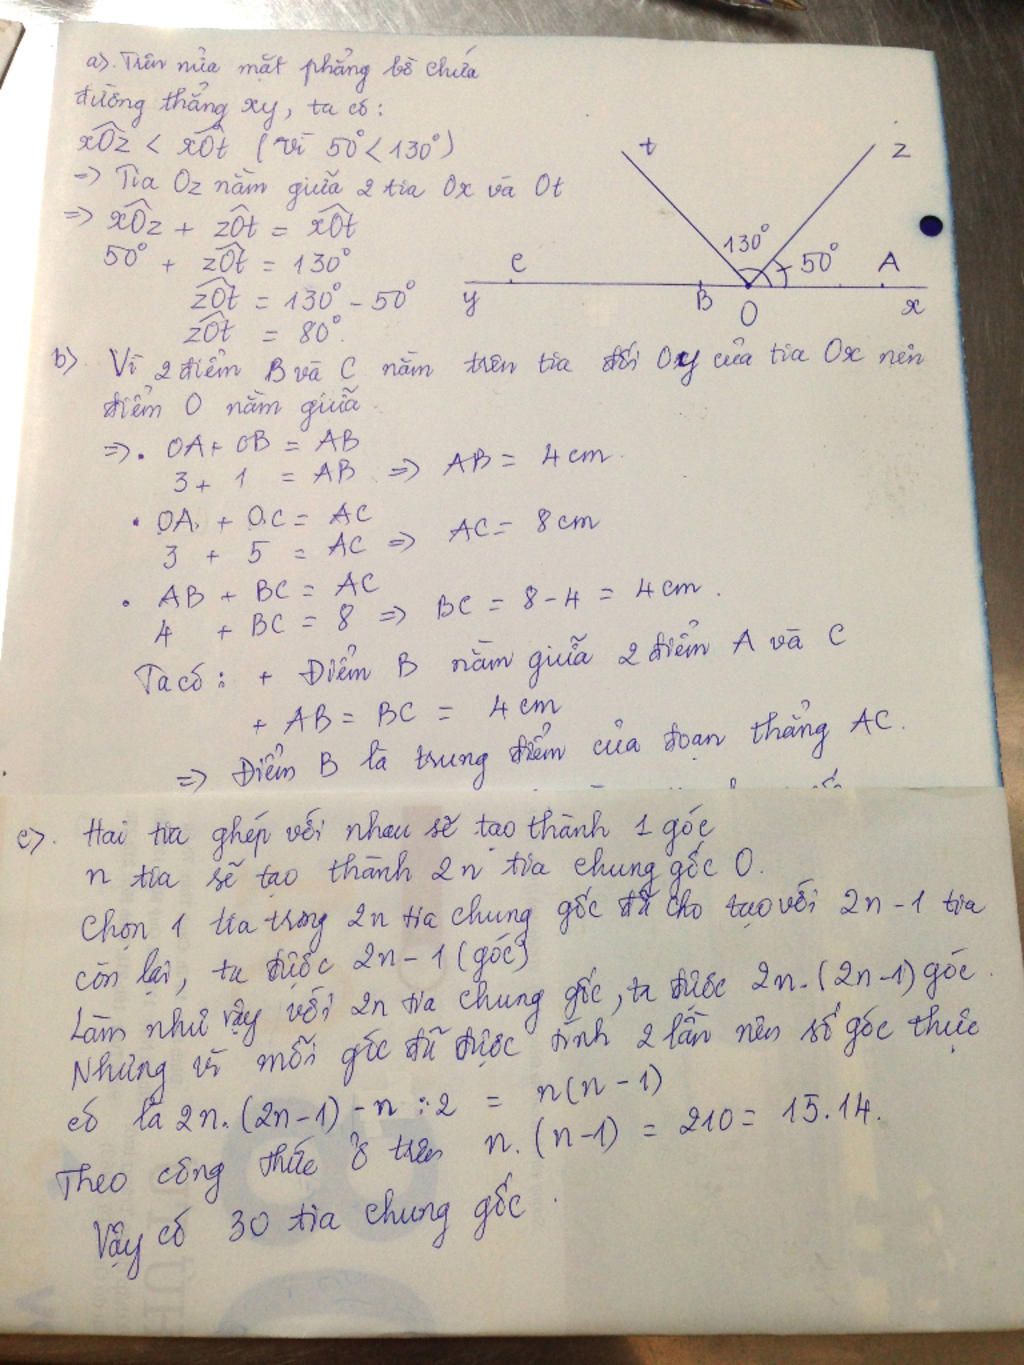 a). Trên nửa mặt phẳng bờ chứa
đường thẳng xy, ta có:
xÔz < xÔt (vì 50° < 130°)
=> Tia Oz nằm giữa 2 tia Ox và Ot
=> xÔz + zÔt = xÔt
50° + zÔt = 130°
zÔt = 130° - 50°
zÔt = 80°.
t
z
130°
50°
C
A
y
B
O
x
b) Vì 2 điểm B và C nằm trên tia đối Oy của tia Ox nên
điểm O nằm giữa
=>. OA + OB = AB
3 + 1 = AB => AB = 4 cm.
• OA + OC = AC
3 + 5 = AC => AC = 8 cm
• AB + BC = AC
4 + BC = 8 => BC = 8 - 4 = 4 cm.
Ta có: + Điểm B nằm giữa 2 điểm A và C
+ AB = BC = 4 cm
=> Điểm B là trung điểm của đoạn thẳng AC.
c). Hai tia ghép với nhau sẽ tạo thành 1 góc
n tia sẽ tạo thành 2n tia chung gốc O.
Chọn 1 tia trong 2n tia chung gốc đã cho tạo với 2n - 1 tia
còn lại, ta được 2n - 1 (góc)
Làm như vậy với 2n tia chung gốc, ta được 2n. (2n - 1) góc.
Nhưng vì mỗi góc đã được tính 2 lần nên số góc thực
có là 2n. (2n - 1) - n : 2 = n(n - 1)
Theo công thức ở trên n. (n - 1) = 210 = 15.14.
Vậy có 30 tia chung gốc.